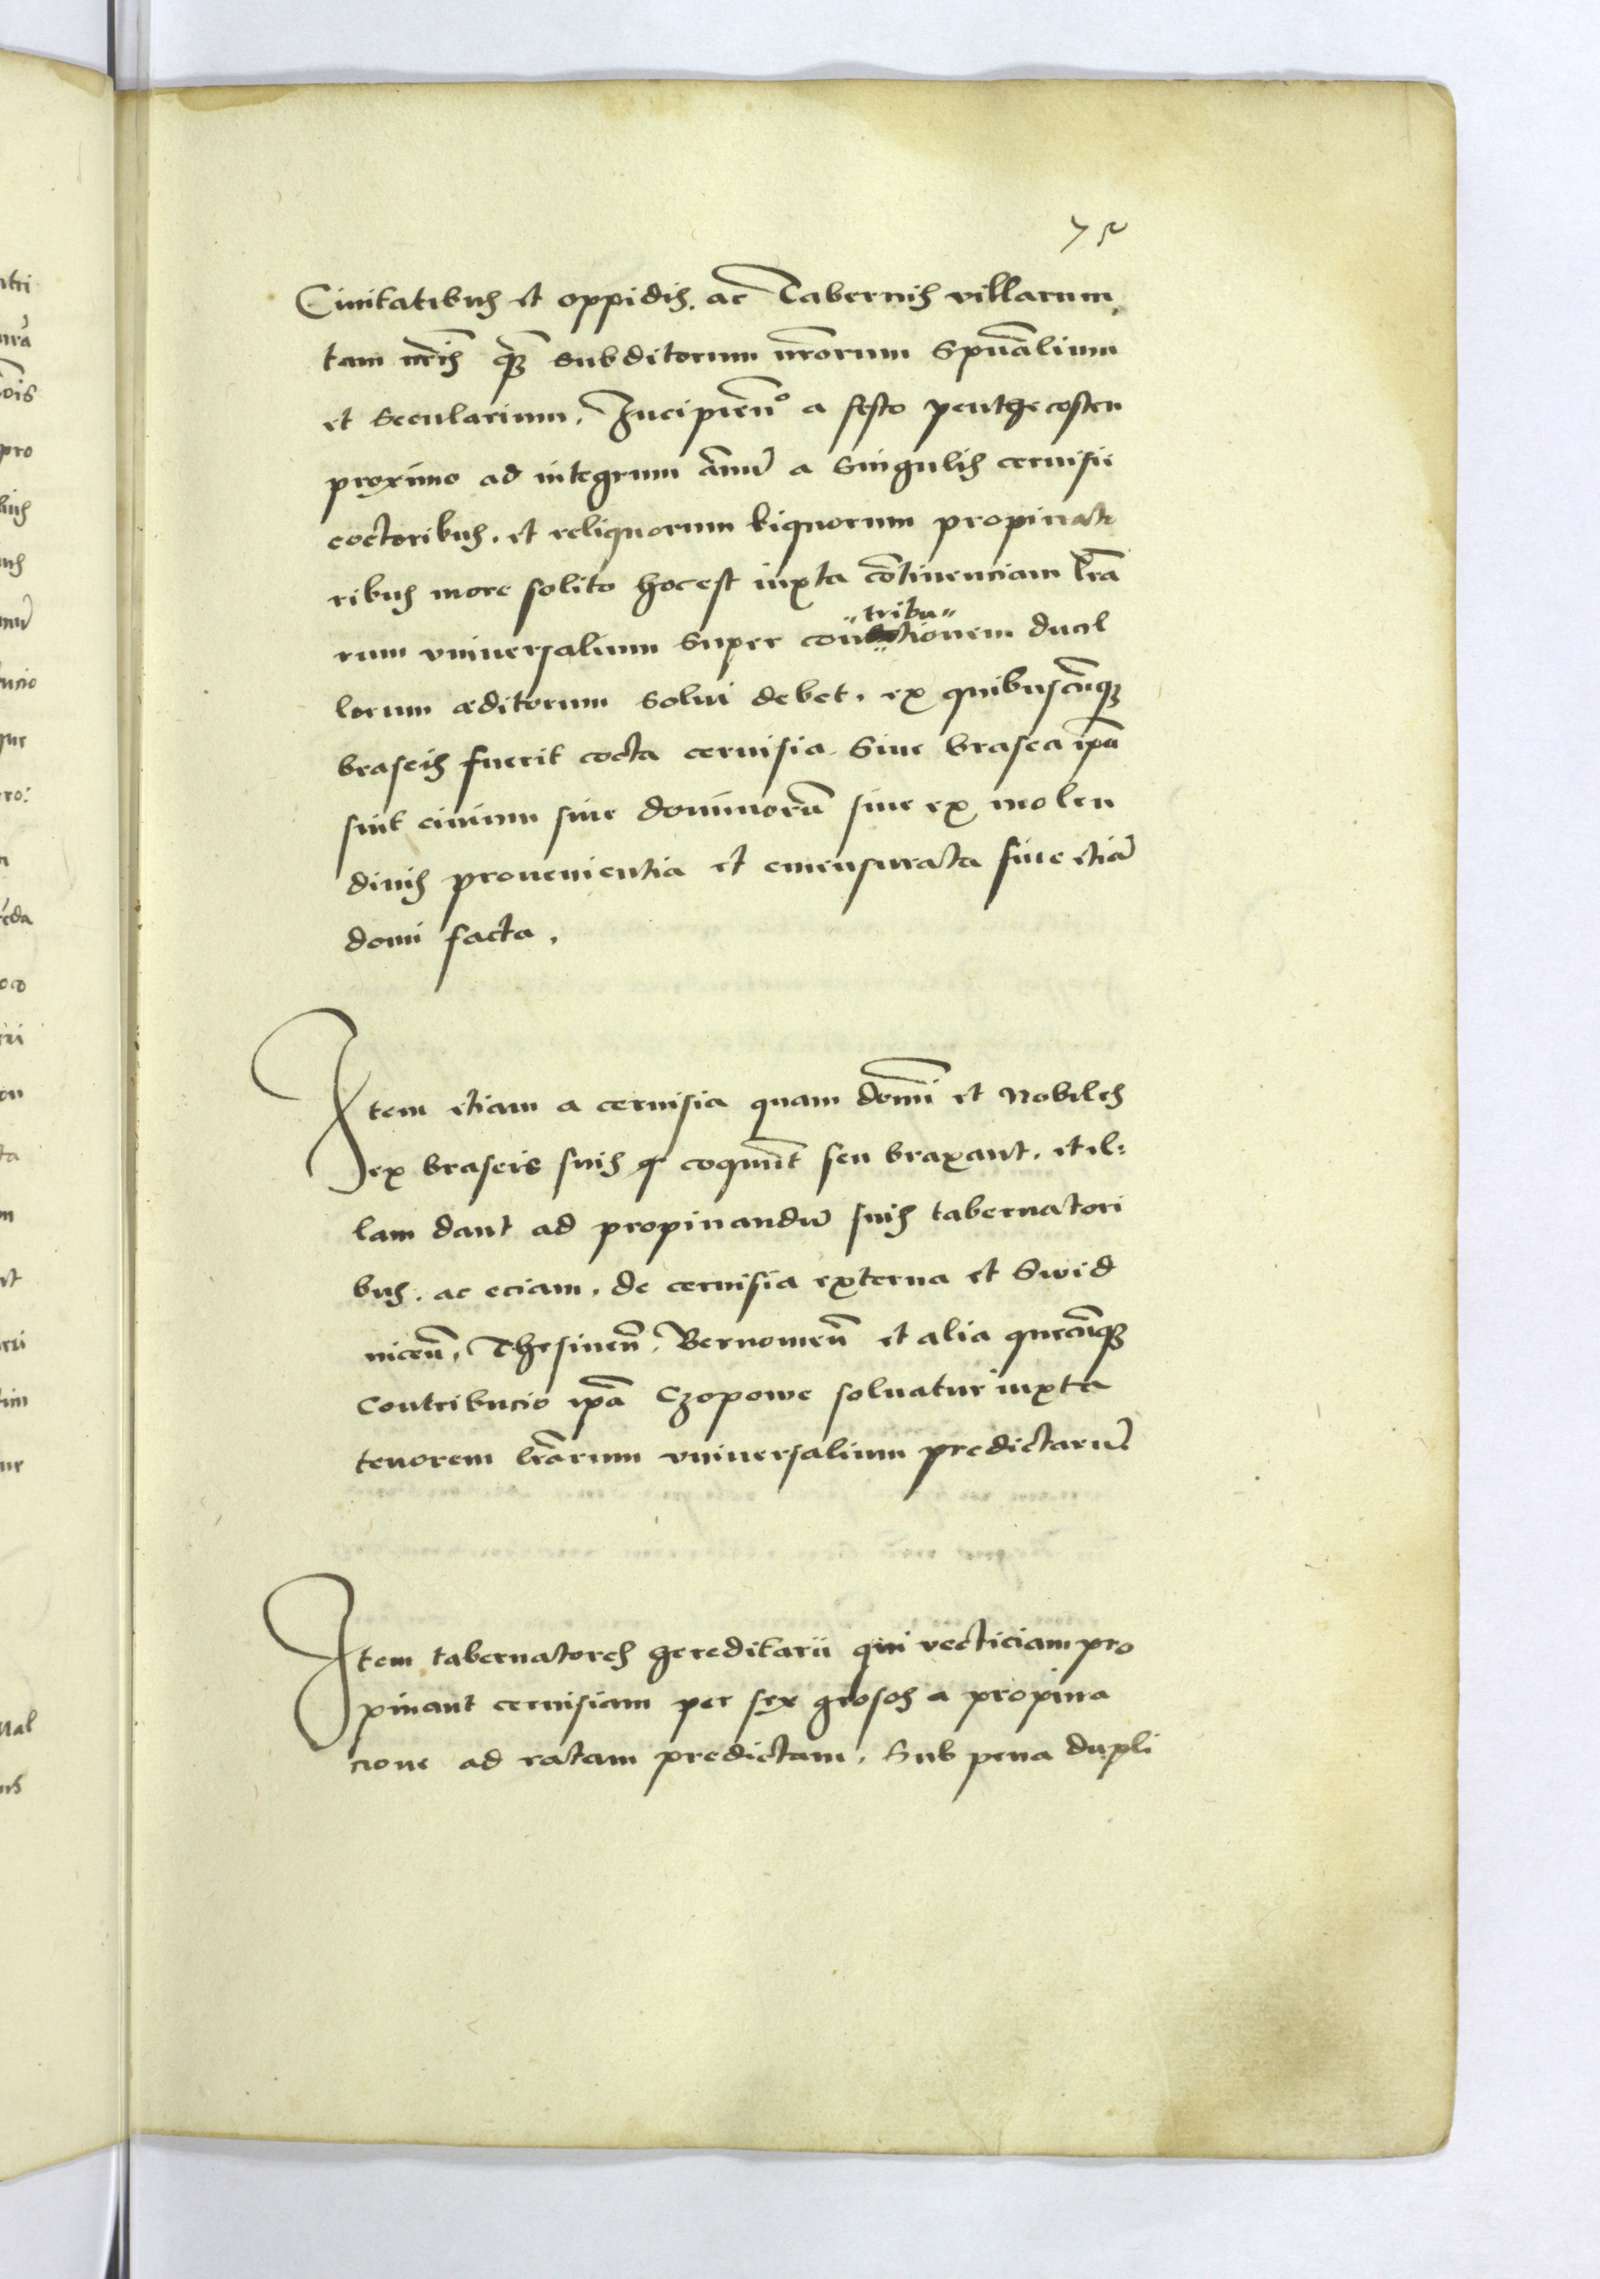 75
Ciuitatibus et oppidis. ac Tabernis villarum,
tam nr̃is q̃ȝ subditorum nr̃orum Spũalium
et Secularium. Incipien̄º a festo penthecosten
proximo ad integrum ãnũ a Singulis ceruisii
coctoribus. et reliquorum liquorum propinato
ribus more solito hoc est iuxta cõtinenciam lr̃a
rum vniuersalium Super con tionem ducil
tribu
lorum æditorum Solui debet. ex quibuscũqȝ
braseis fuerit cocta ceruisia Siue brasea ip̃a
sint ciuium siue dominorũ siue ex molen
dinis prouenientia et emensurata siue etiã
domi facta.
Item etiam a ceruisia quam domĩ et Nobiles
ex braseis suis coquũt seu braxant. et il:
lam dant ad propinandũ suis tabernatori
bus. ac eciam. de ceruisia externa et Swid
niceñ. Thesineñ. Bernomeñ et alia quecũqȝ
Contribucio ip̃a Czopowe soluatur iuxta
tenorem lr̃arum vniuersalium predictarũ
Item tabernatores hereditarii qui vecticiam pro
pinant ceruisiam per sex grosos a propina
cione ad ratam predictam. Sub pena dupli